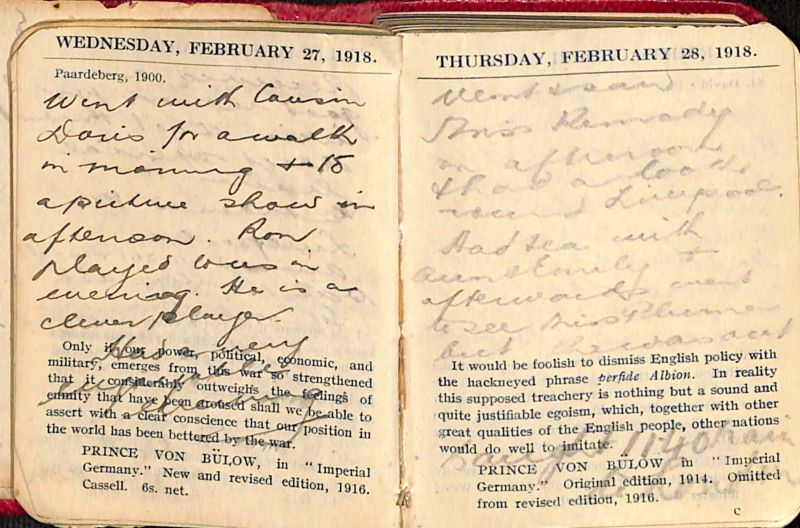 WEDNESDAY, FEBRUARY 27, 1918.
Paardeberg, 1900.
Went with Cousin
Doris for a walk
in morning & to
a picture show in
afternoon. Ron
played to us in
evening. He is a
clever player.
Had a very
enjoyable
evening
Only if our power, political, economic, and
military, emerges from this war so strengthened
that it considerably outweighs the feelings of
enmity that have been aroused shall we be able to
assert with a clear conscience that our position in
the world has been bettered by the war.
PRINCE VON BÜLOW, in "Imperial
Germany." New and revised edition, 1916.
Cassell. 6s. net.
THURSDAY, FEBRUARY 28, 1918.
Went & saw
Miss Kennedy
in afternoon
& had a look
round Liverpool.
Had tea with
Aunt Emily &
afterwards went
to see Miss Plummer
but was out
It would be foolish to dismiss English policy with
the hackneyed phrase perfide Albion. In reality
this supposed treachery is nothing but a sound and
quite justifiable egoism, which, together with other
great qualities of the English people, other nations
would do well to imitate.
1140 train
PRINCE VON BÜLOW in "Imperial
Germany." Original edition, 1914. Omitted
from revised edition, 1916.
C